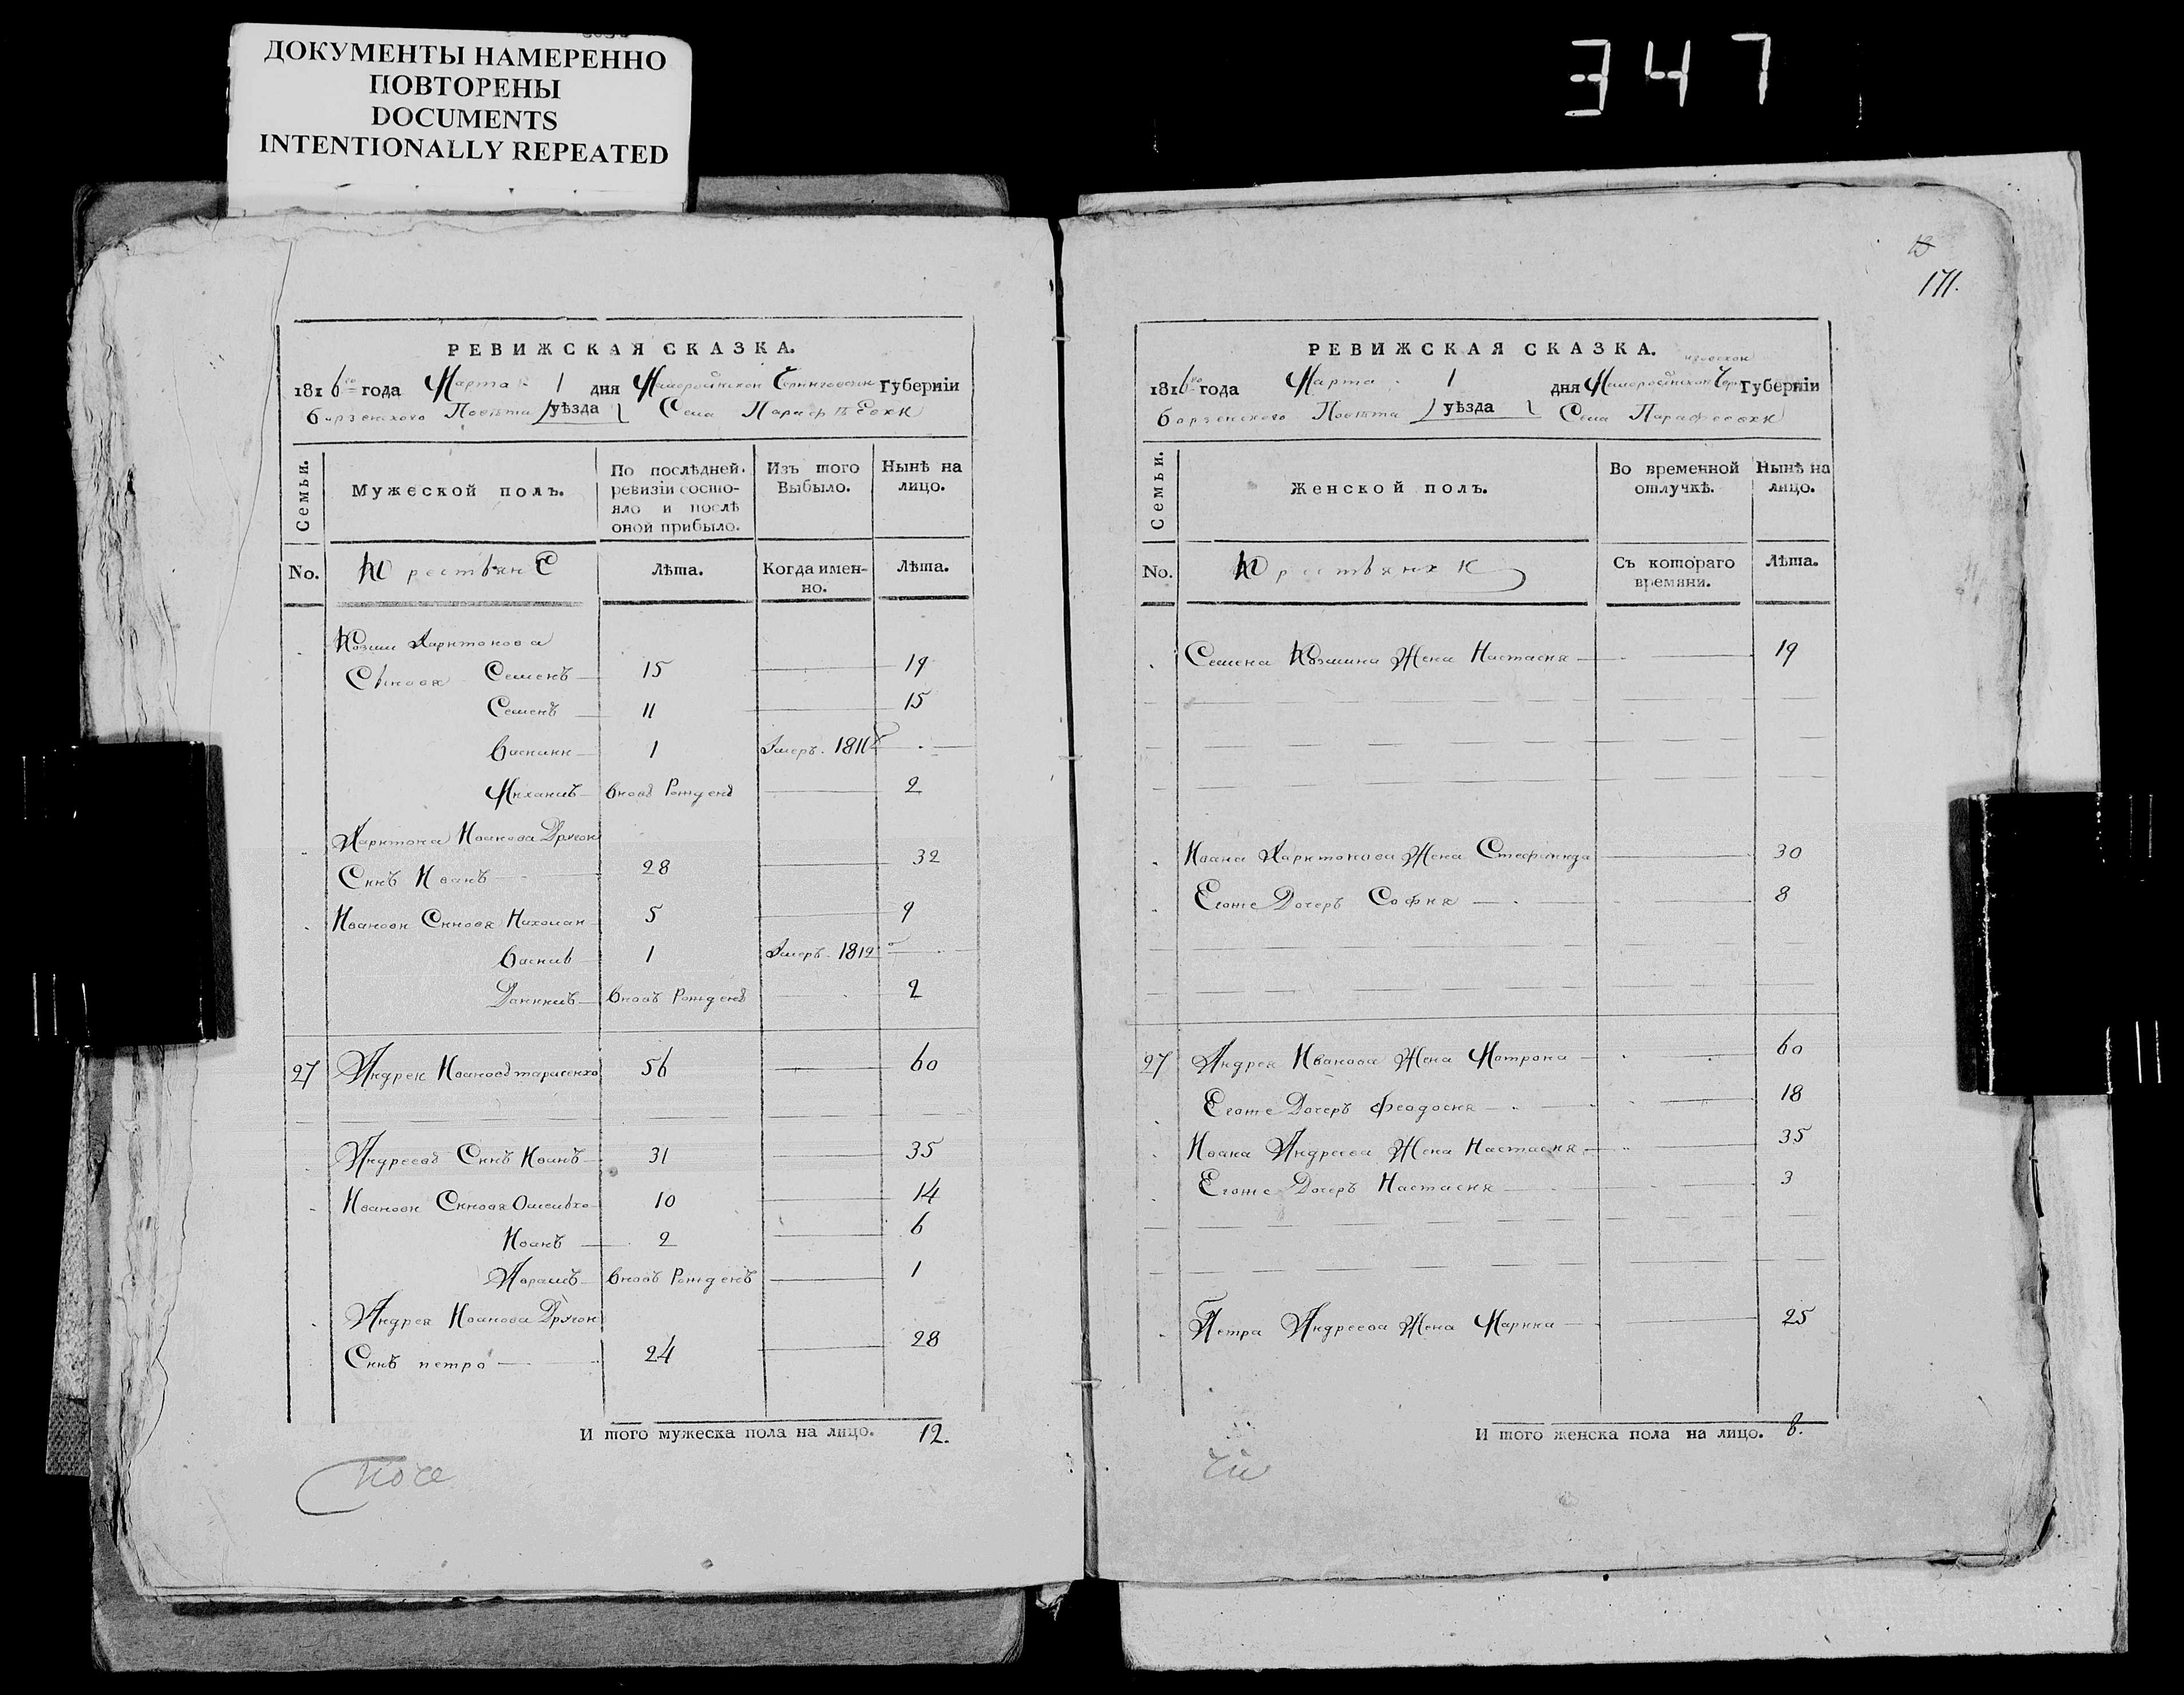 ДОКУМЕНТЫ НАМЕРЕННО
ПОВТОРЕНЫ
DOCUMENTS
INTENTIONALLY REPEATED
347
РЕВИЖСКАЯ СКАЗКА.
1816го года Марта 1 дня Малороссійской Черниговской Губерніи
борзенского Повѣта уѣзда Села Парафѣевки
Семьи.
Мужеской полъ.
По послѣдней ревизіи состо-
яло и послѣ
оной прибыло.
Изъ того
Выбыло.
Нынѣ на
лицо.
No.
Крестьяне
Лѣта.
Когда имен-
но.
Лѣта.
Козми Харитонова
Сыновя Семенъ 15 19
Семенъ 11 15
Василии 1 Умеръ 1811
Михаилъ вновъ Рожденъ 2
Харитона Иванова Другои
Синъ Иванъ 28 32
Ивановы Синовя Николаи 5 9
Василь 1 Умеръ 1812
Даниилъ вновъ Рожденъ 2
27 Андреи Ивановъ тарасенко 56 60
Андреевъ Синъ Иванъ 31 35
Ивановы Синовя Омелько 10 14
Иванъ 2 6
Абрамъ вновъ Рожденъ 1
Андрея Иванова Другои
Синъ петро 24 28
И того мужеска пола на лицо. 12.
171.
РЕВИЖСКАЯ СКАЗКА.
1816го года Марта 1 дня Малороссійской Черниговской Губерніи
борзенского Повѣта уѣзда Села Парафеевки
Семьи.
Женской полъ.
Во временной
отлучкѣ.
Нынѣ на
лицо.
No.
Крестьянки
Съ котораго
времяни.
Лѣта.
Семена Козмина Жена Настасия 19
Ивана Харитонова Жена Стефанида 30
Егоже Дочеръ София 8
27 Андрея Иванова Жена Мотрона 60
Егоже Дочеръ Феодосия 18
Ивана Андреева Жена Настасия 35
Егоже Дочеръ Настасия 3
Петра Андреева Жена Марина 25
И того женска пола на лицо. 8.